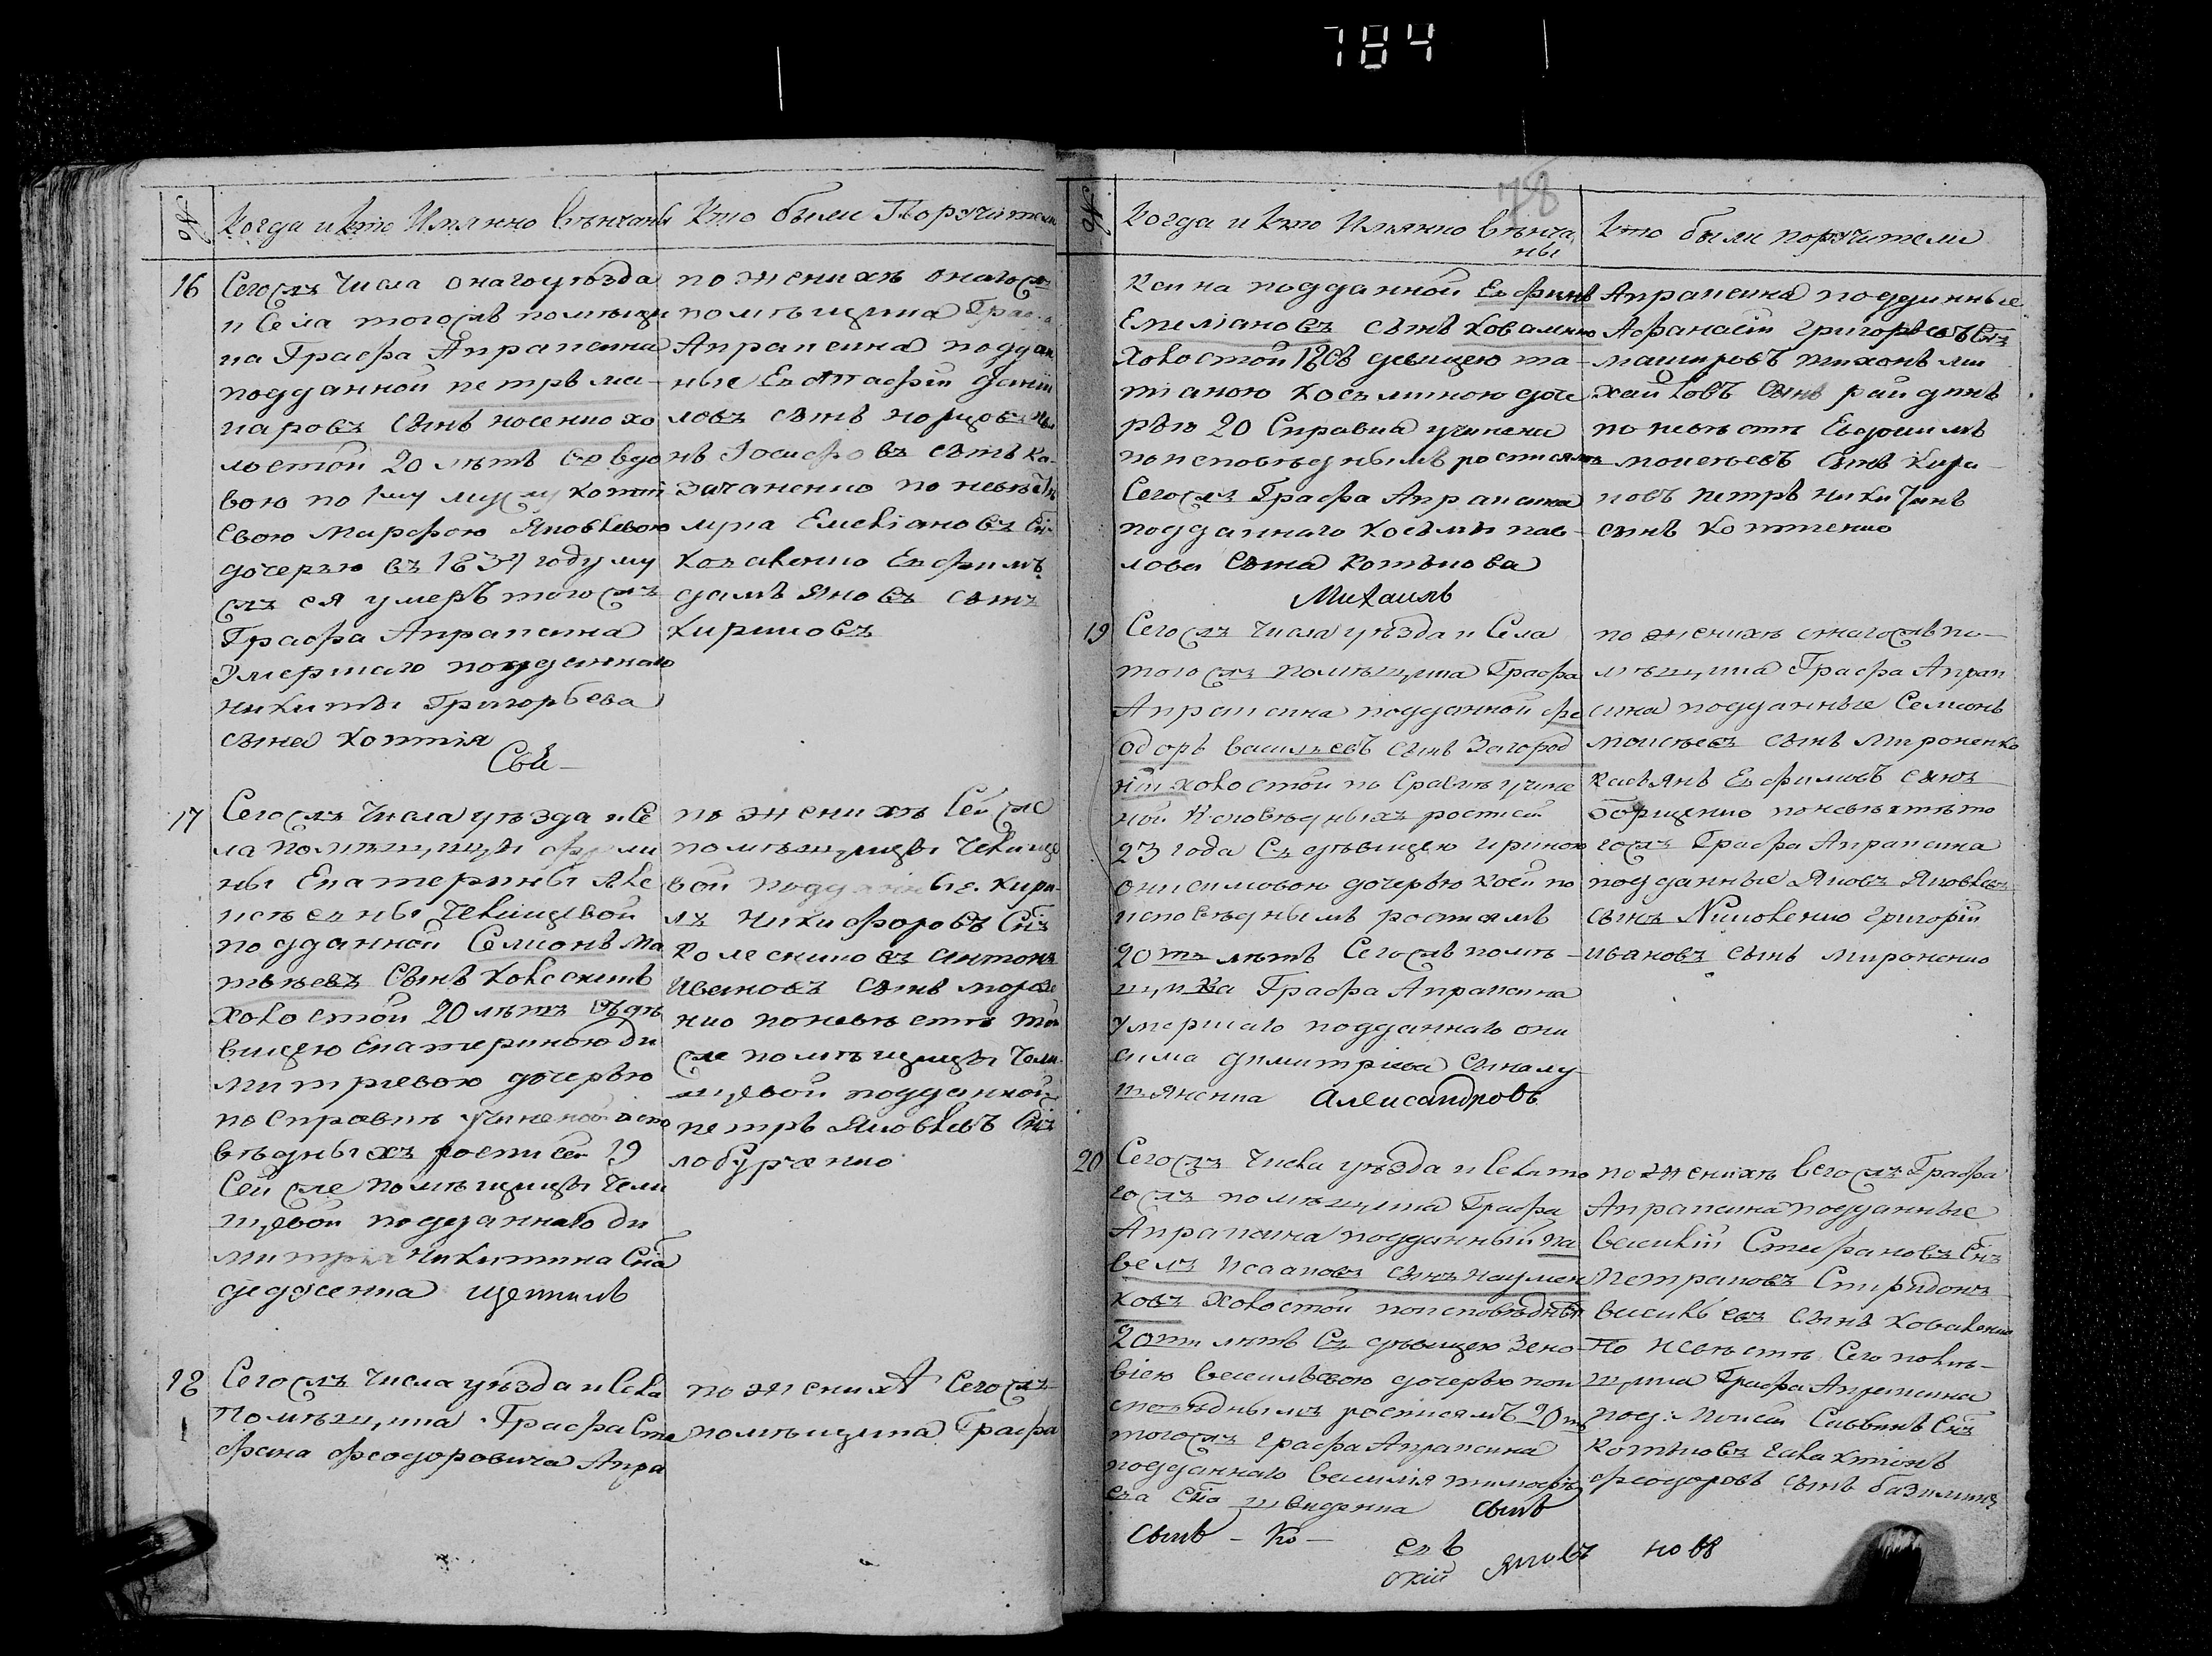 784
№ Когда и кто Имянно венчаны
Кто были Поручители
16 Сегожъ числа онагоуѣзда
и села тогожъ помѣщи
ка Графа Апраксина
подданной петръ ма-
каровъ сынъ носенко хо
лостой 20 лѣтъ со вдо
вою по 1му мужу
свою Марфою Яковлевою
дочерью въ 1831 году му
жъ ея умеръ тогожъ
Графа Апраксина
Умершаго подданнаго
никиты Григорьева
сына коттія
Свя-
по женихѣ онагожъ
помѣщика Графа
Апраксина поддан
ные Евстафій данїи
ловъ сынъ
нъ Іосифовъ сынъ ка-
зачаненко по невѣстѣ
Емеліановъ сы
коваленко Евфимъ
даміяновъ сынъ
кириловъ
17 Сегожъ числа уѣзда и се
ла помѣщицы
ны Екатерины Але
ксѣевны Челищевой
подданной Семіонъ Ма
тѣевъ сынъ колеснинъ
холостой 20 лѣтъ съ дѣ
вицею Екатериною Ди
митріевою дочерью
по справкѣ учиненой испо
вѣдныхъ росписей 19
Сей же помѣщицы Чели
щевой подданнаго Ди
митрія Никитина сна
дядченка щетилъ
по женихѣ Сей же
помѣщицы Челище
вой подданные. Кири
лъ Никифоровъ снъ
Колесниковъ антонъ
Ивановъ сынъ мороз
нко по невѣстѣ той
же помѣщицы Чели
щевой подданной
петръ Яковлевъ снъ
лобурченко
18 Сегожъ числа уѣзда и села
Помѣщика Графа Сте
фана Феодоровича Апра
по женихѣ Сегожъ
помѣщика Графа
78
№ Когда и кто Имянно венча
ны
Кто были поручители
ксина подданной Евфимъ
Емеліановъ сынъ коваленко
холостой 18 съ девицею та-
тіаною Косминою доче
рью 20 Справка учинена
по исповѣднымъ росписямъ
Сегожъ Графа Апраксина
подданнаго Космы пав-
лова сына котькова
Михаилъ
Апраксина подданные
Афанасій григорьевъ снъ
машировъ тихонъ ми
хайловъ сынъ райдинъ
по невѣстѣ Евфимъ
моисеевъ сынъ кири
ловъ петръ никитинъ
сынъ коттенко
19 Сегожъ числа уѣзда и села
того жъ помѣщика Графа
Апраксина подданной Фе
одоръ васильевъ сынъ Загород
ній холостой по справкѣ учине
ной Исповѣдныхъ росписей
23 года съ дѣвицею ириною
онисимовою дочерью коей по
исповѣднымъ росписямъ
20ть лѣтъ Сегожъ помѣ-
щика Графа Апраксина
Умершаго подданнаго они
сима димитріева сына лу
тянсика Александровъ
по женихѣ онагожъ по-
мѣщика Графа Апрак
сина подданные Семіонъ
моисѣевъ сынъ мироненко
касіянъ Евфимовъ сынъ
Борщенко по невѣстѣ то
гожъ Графа Апраксина
подданные Яковъ Яковлевъ
сынъ Николенко григорій
ивановъ сынъ мироненко
20 Сегожъ числа уѣзда и села то
гожъ помѣщика Графа
Апраксина подданный па
велъ исааковъ сынъ наумен
ковъ холостой по исповѣднымъ
20ти лѣтъ съ дѣвицею Зено-
віею васильевою дочерью по и
сповѣднымъ росписямъ 20ть
тогожъ графа Апраксина
подданнаго василія тимофѣ
ева сна шведенка сынъ
сынъ - ко -
евъ
окій
Яковъ
новъ
по женихѣ Сегожъ Графа
Апраксина подданные
василій Стефановъ снъ
петраковъ Спиридонъ
василіевъ сынъ коваленко
по невѣстѣ Сего помѣ-
щика Графа Апраксина
под: моисей Саввинъ снъ
котьковъ галактіонъ
феодоровъ сынъ базилинъ